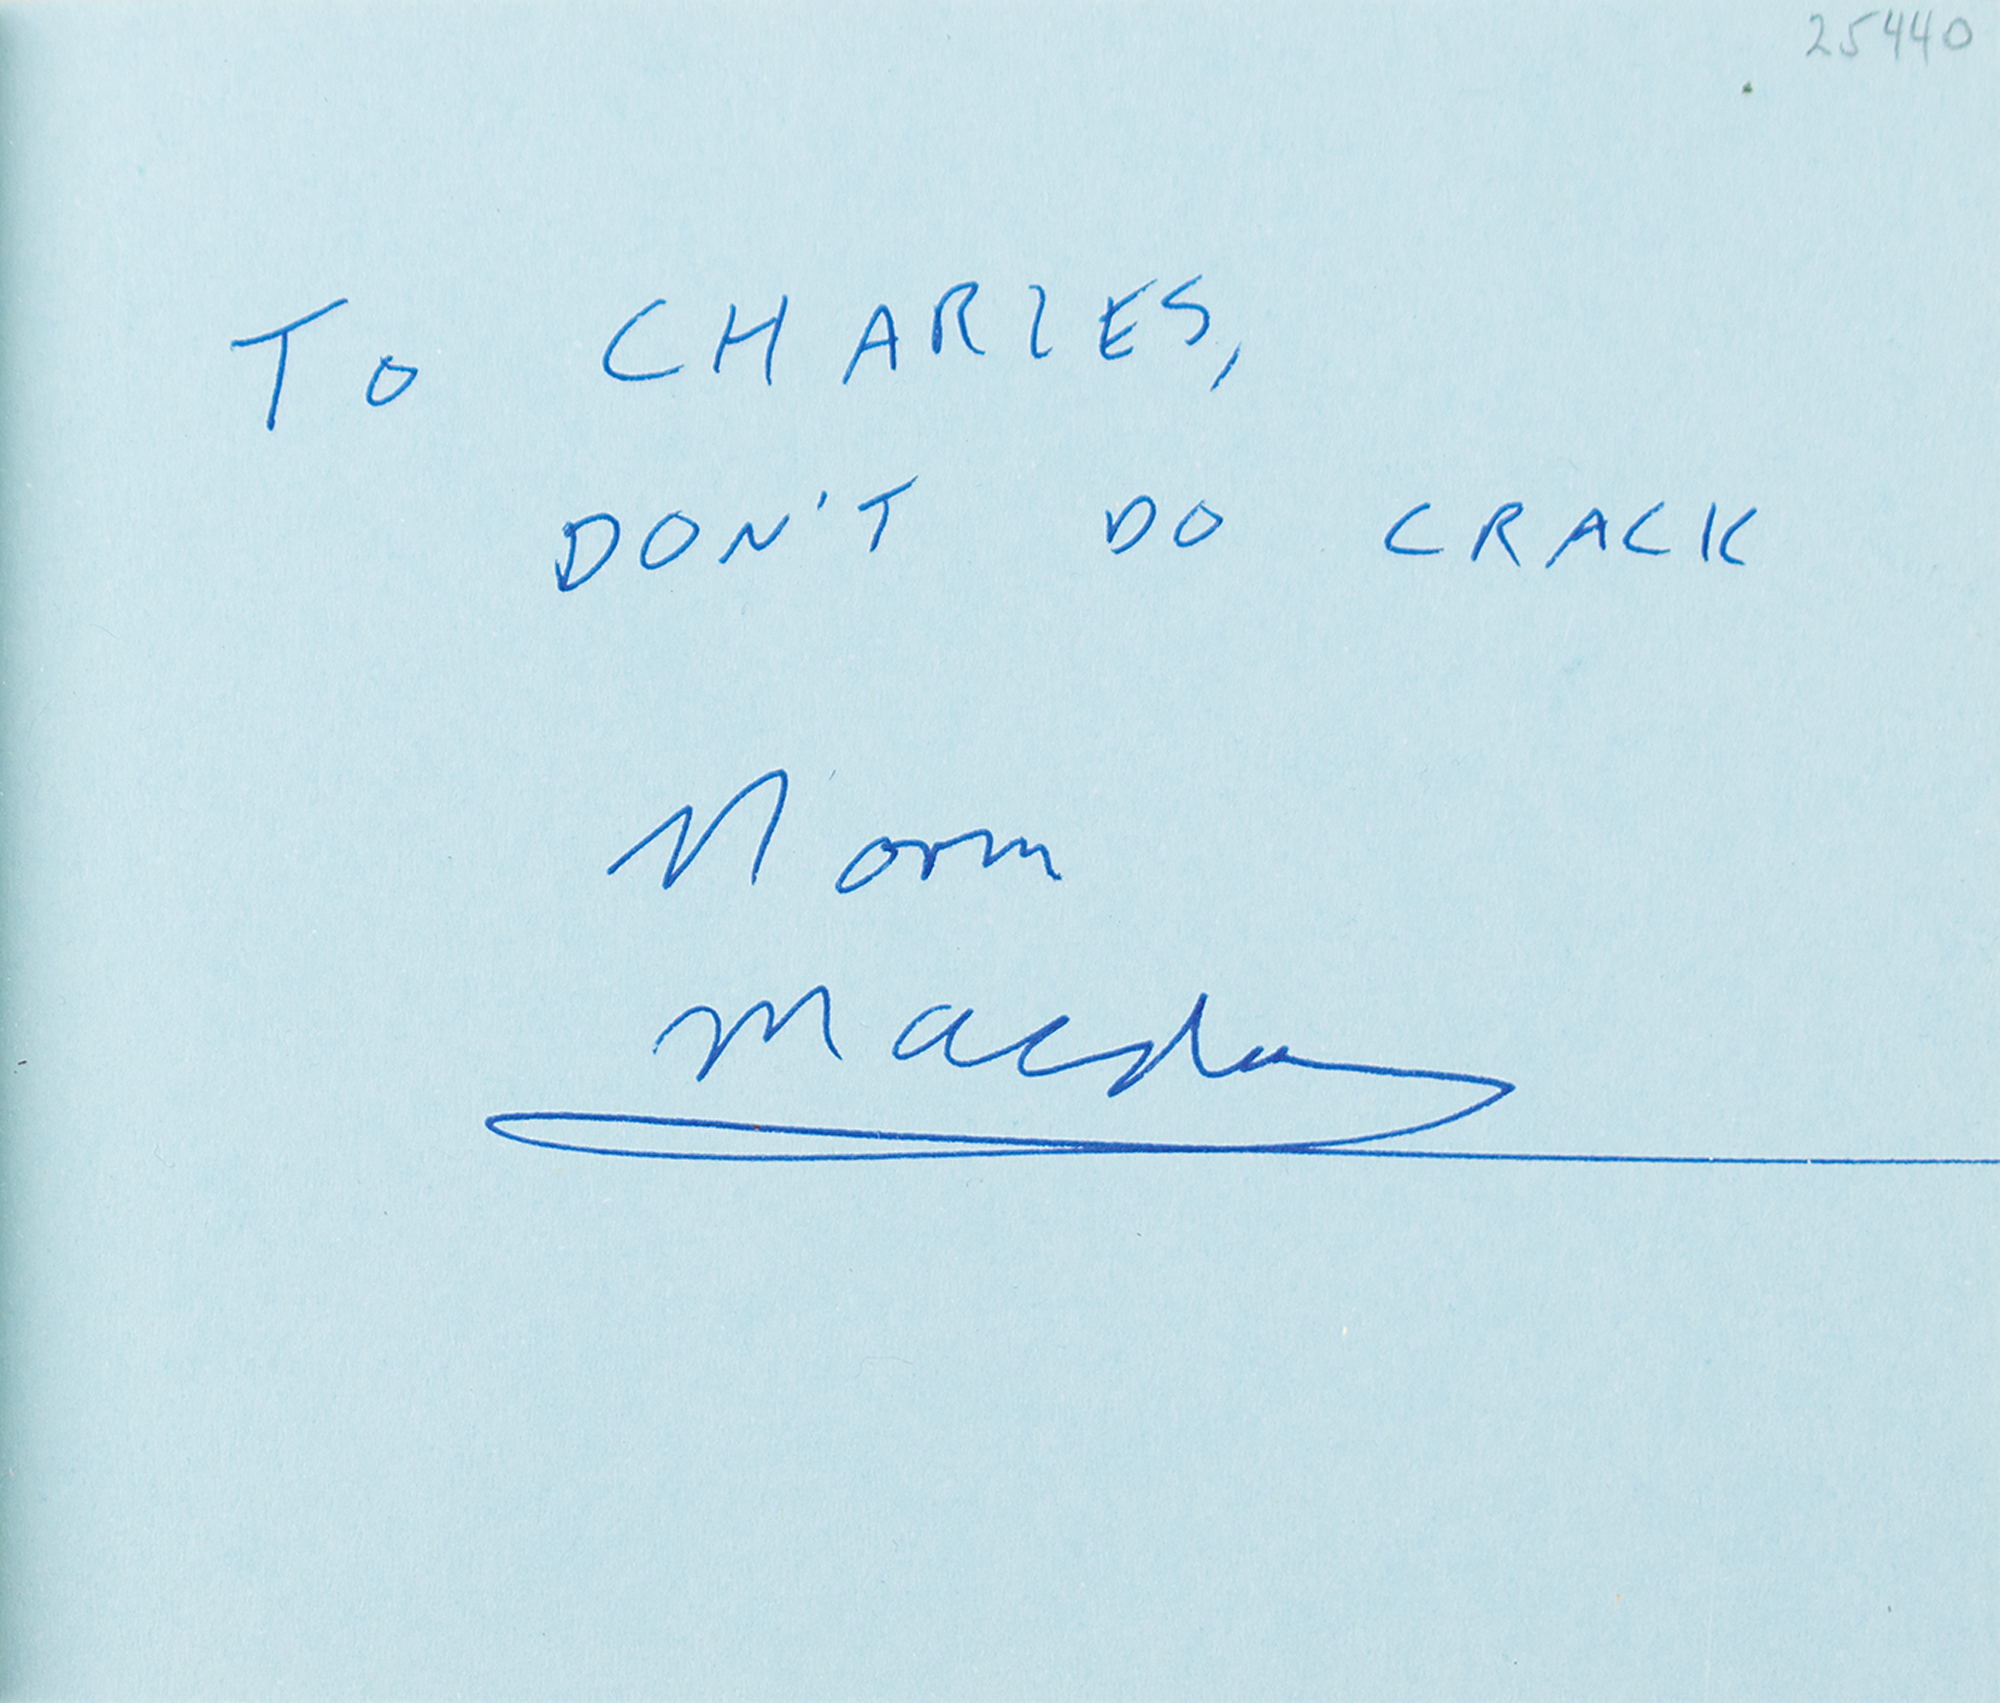 25440
To CHARLES,
DON'T DO CRACK
Norm
Macd